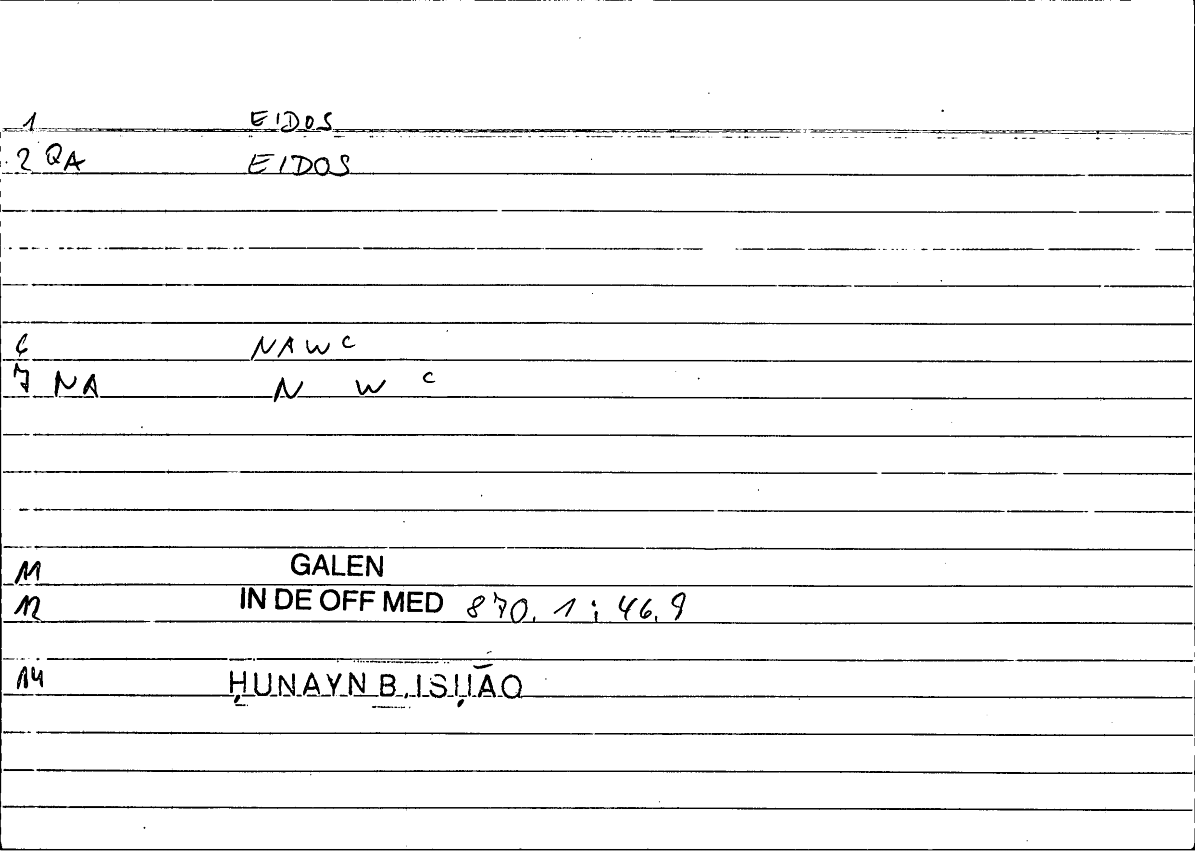 1 EIDOS
2 QA EIDOS
6 NAWC
7 NA N W C
11 GALEN
12 IN DE OFF MED 870, 1 ; 46, 9
14 ḤUNAYN B. ISḤĀQ